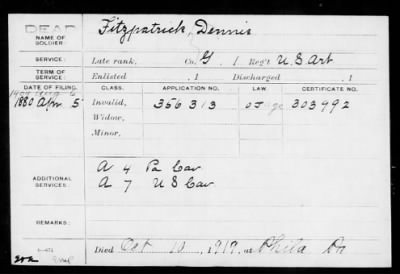 DEAD
NAME OF SOLDIER: Fitzpatrick, Dennis
SERVICE: Late rank, Co. G, 1 Reg't U.S. Art
TERM OF SERVICE: Enlisted , 1 Discharged , 1
DATE OF FILING. CLASS. APPLICATION NO. LAW. CERTIFICATE NO.
1880 Apr. 5 Invalid, 356313 303992
Widow,
Minor,
ADDITIONAL SERVICES: A 4 Pa Cav
A 7 U S Cav
REMARKS:
Died Oct 10, 1919, at Phila Pa